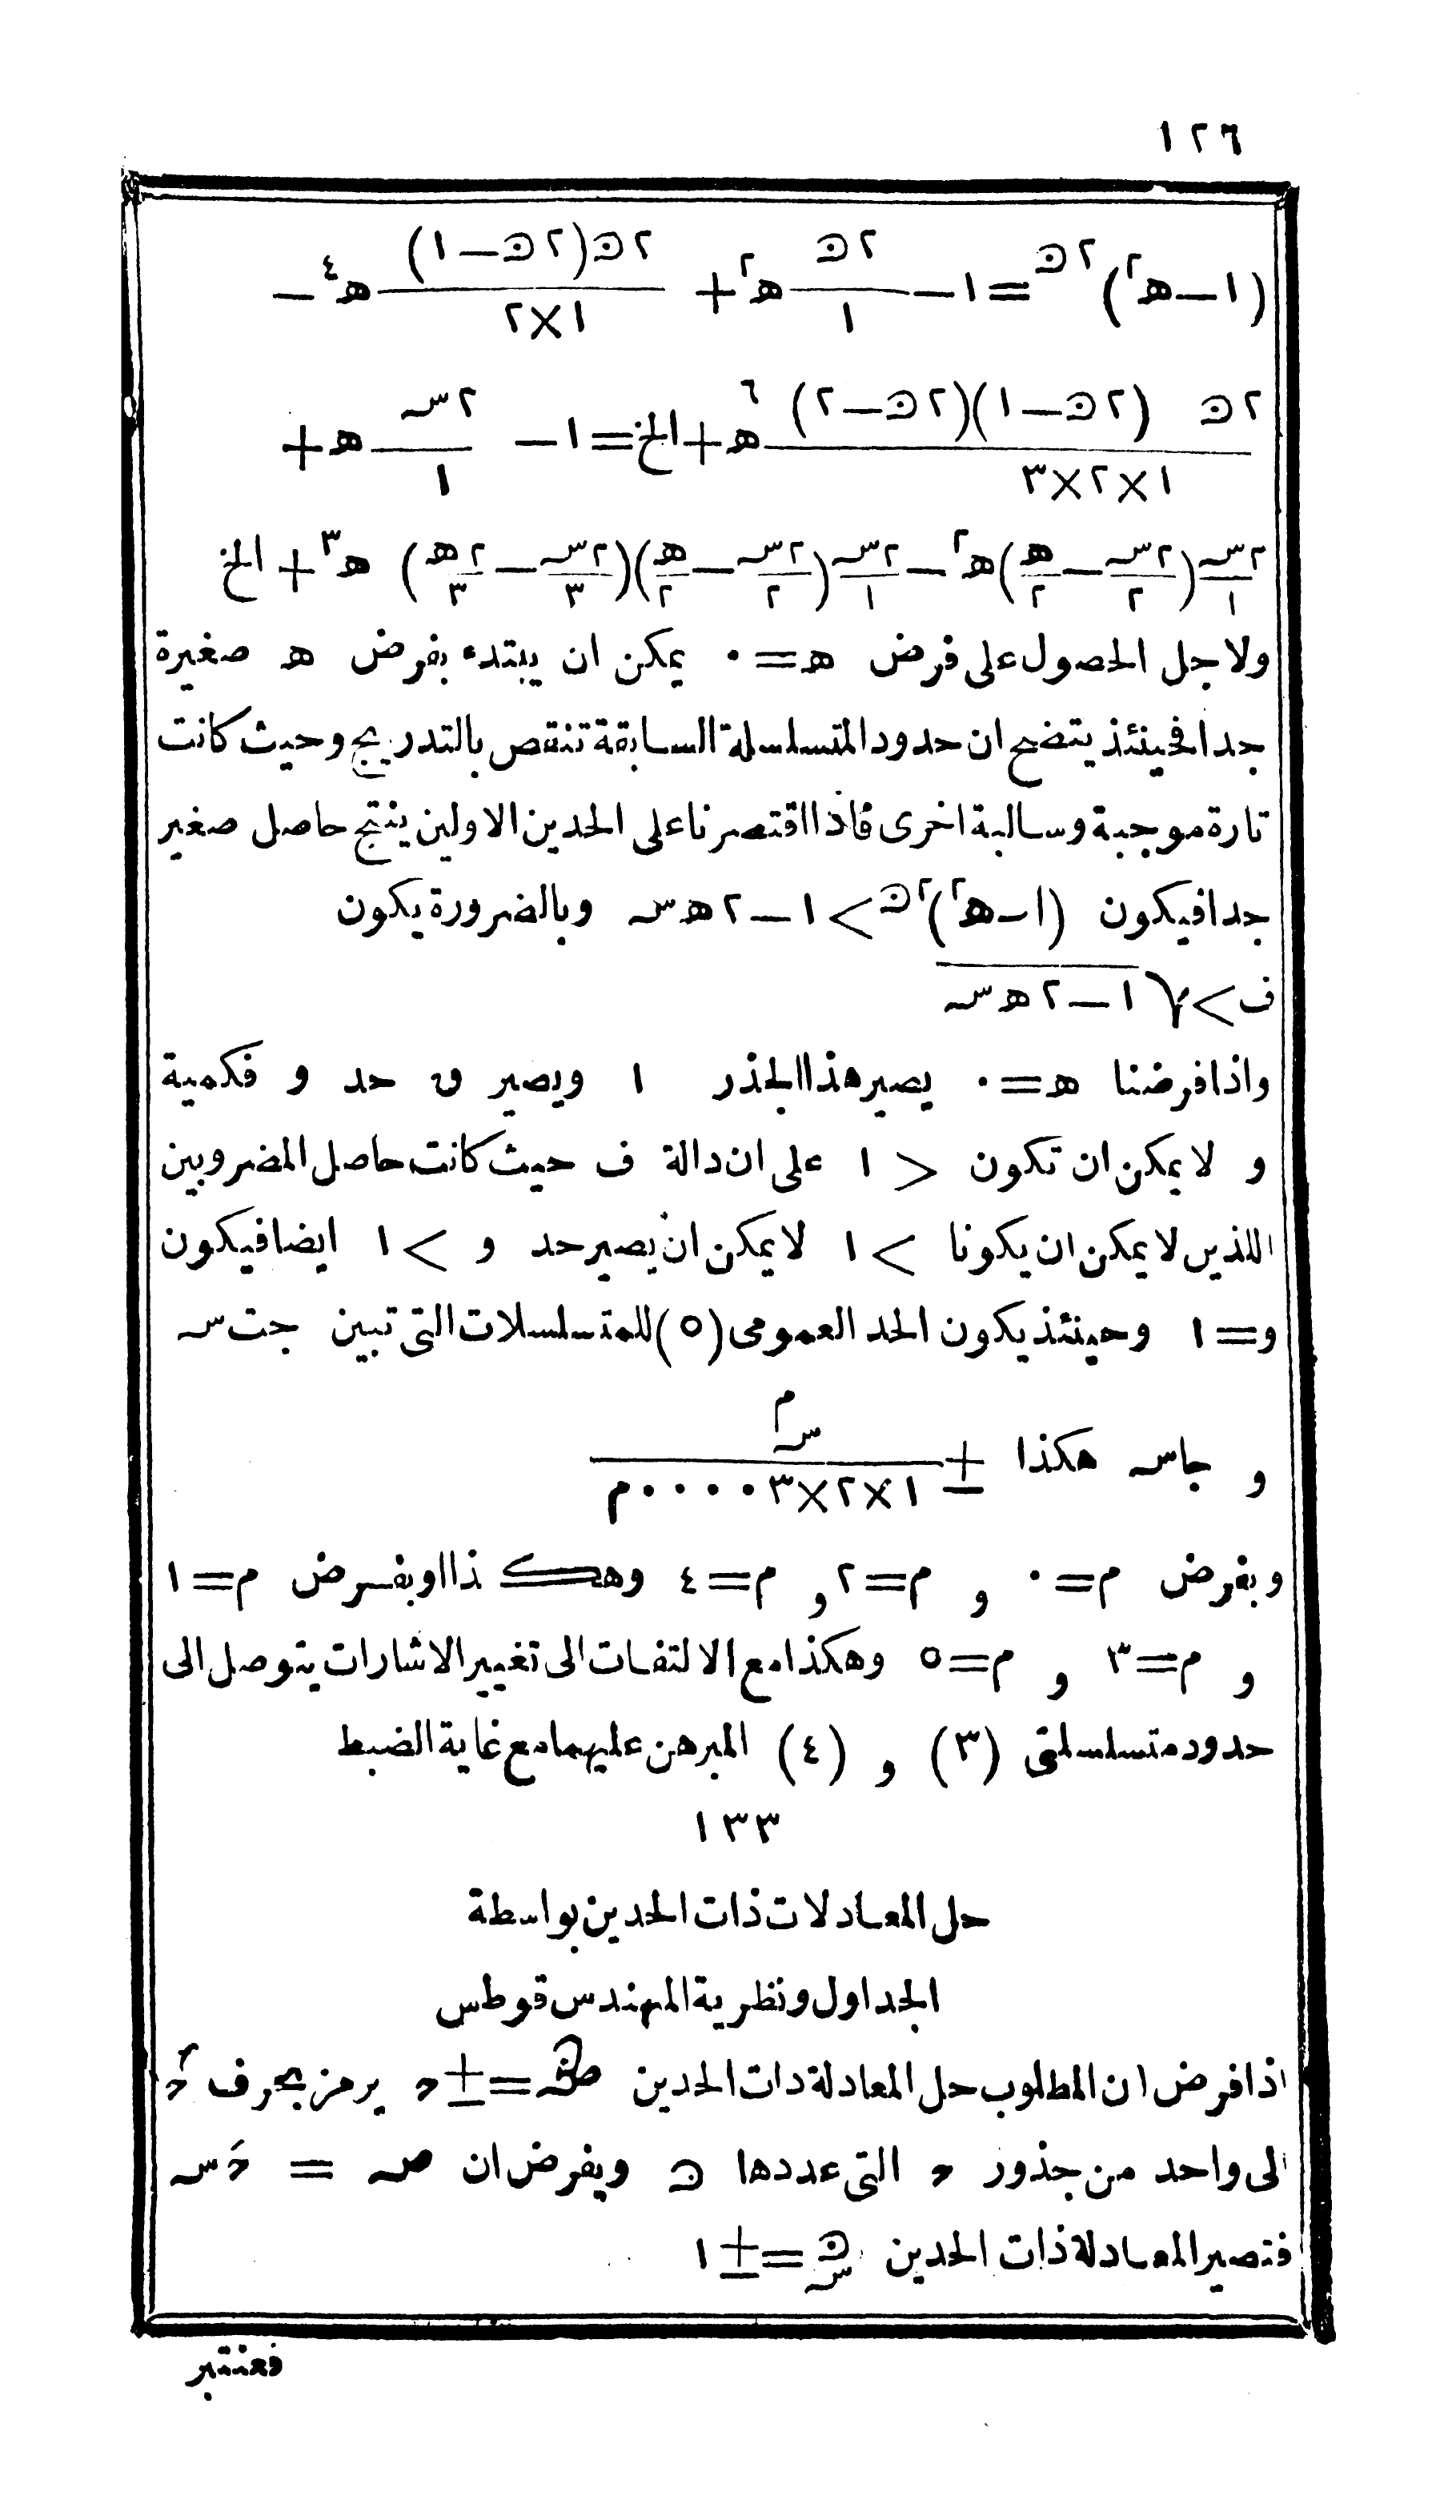 ١٢٦
(١−ه٢)٢ن=١−٢ن/١ ه٢+٢ن(٢ن−١)/١×٢ ه٤−
٢ن (٢ن−١)(٢ن−٢)/١×٢×٣ ه٦+الخ=١−٢س/١ ه+
٢س/١(٢س/٢−ه/٢)ه٢−٢س/١(٢س/٢−ه/٢)(٢س/٣−٢ه/٣) ه٣+الخ
ولاجل الحصول على فرض ه=٠ يمكن ان يبتدء بفرض ه صغيرة
جدا فحينئذ يتضح ان حدود المتسلسلة السابقة تنقص بالتدريج وحيث كانت
تارة موجبة وسالبة اخرى فاذا اقتصرنا على الحدين الاولين ينتج حاصل صغير
جدا فيكون (١−ه٢)٢ن > ١−٢ه س وبالضرورة يكون
ف > √١−٢ه س
واذا فرضنا ه=٠ يصير هذا الجذر ١ ويصير ف حد و فكمية
و لا يمكن ان تكون < ١ على ان دالة ف حيث كانت حاصل المضروبين
اللذين لا يمكن ان يكونا > ١ لا يمكن ان يصير حد و > ١ ايضا فيكون
و=١ وحينئذ يكون الحد العمومى (٥) للمتسلسلات التى تبين جت س
و جاس هكذا ± س^م/١×٢×٣٠٠٠٠م
وبفرض م=٠ و م=٢ و م=٤ وهكذا او بفرض م=١
و م=٣ و م=٥ وهكذا مع الالتفات الى تغيير الاشارات يتوصل الى
حدود متسلسلتى (٣) و (٤) المبرهن عليهما مع غاية الضبط
١٣٣
حل المعادلات ذات الحدين بواسطة
الجداول ونظرية المهندس قوطس
اذا فرض ان المطلوب حل المعادلة ذات الحدين ص^ن=±د يرمز بحرف دَ
الى واحد من جذور د التى عددها ن ويفرض ان ص = دَس
فتصير المعادلة ذات الحدين س^ن=±١
فعنتبر